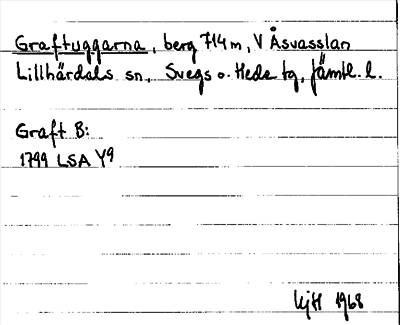 Graftuggarna, berg 714 m, V Åsvasslan
Lillhärdals sn, Svegs o. Hede tg, Jämtl. l.
Graft B:
1799 LSA Y9
1968